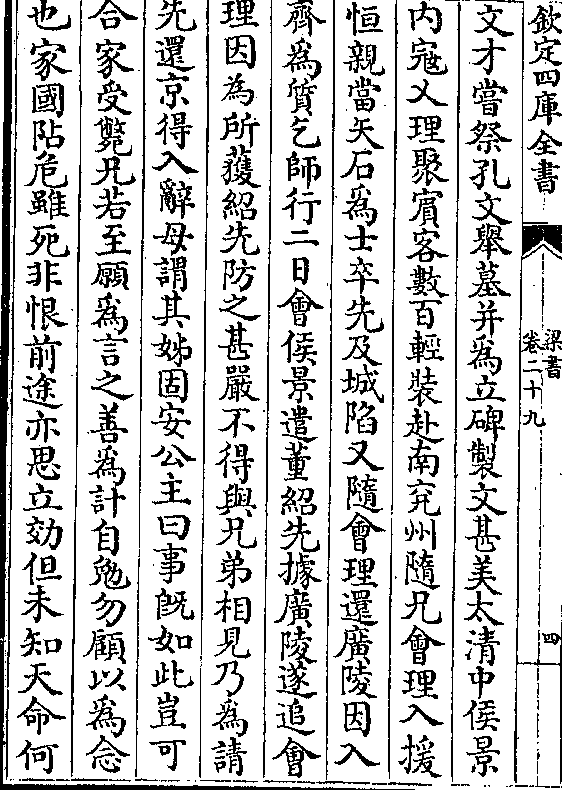 欽定四庫全書
梁書
卷二十九
四
文才嘗祭孔文舉墓并為立碑製文甚美太清中侯景
内寇乂理聚賓客數百輕裝赴南兖州隨兄會理入援
恒親當矢石為士卒先及城陷又隨會理還廣陵因入
齊為質乞師行二日會侯景遣董紹先據廣陵遂追會
理因為所獲紹先防之甚嚴不得與兄弟相見乃為請
先還京得入辭母謂其姊固安公主曰事旣如此豈可
合家受斃兄若至願為言之善為計自勉勿顧以為念
也家國阽危雖死非恨前途亦思立効但未知天命何